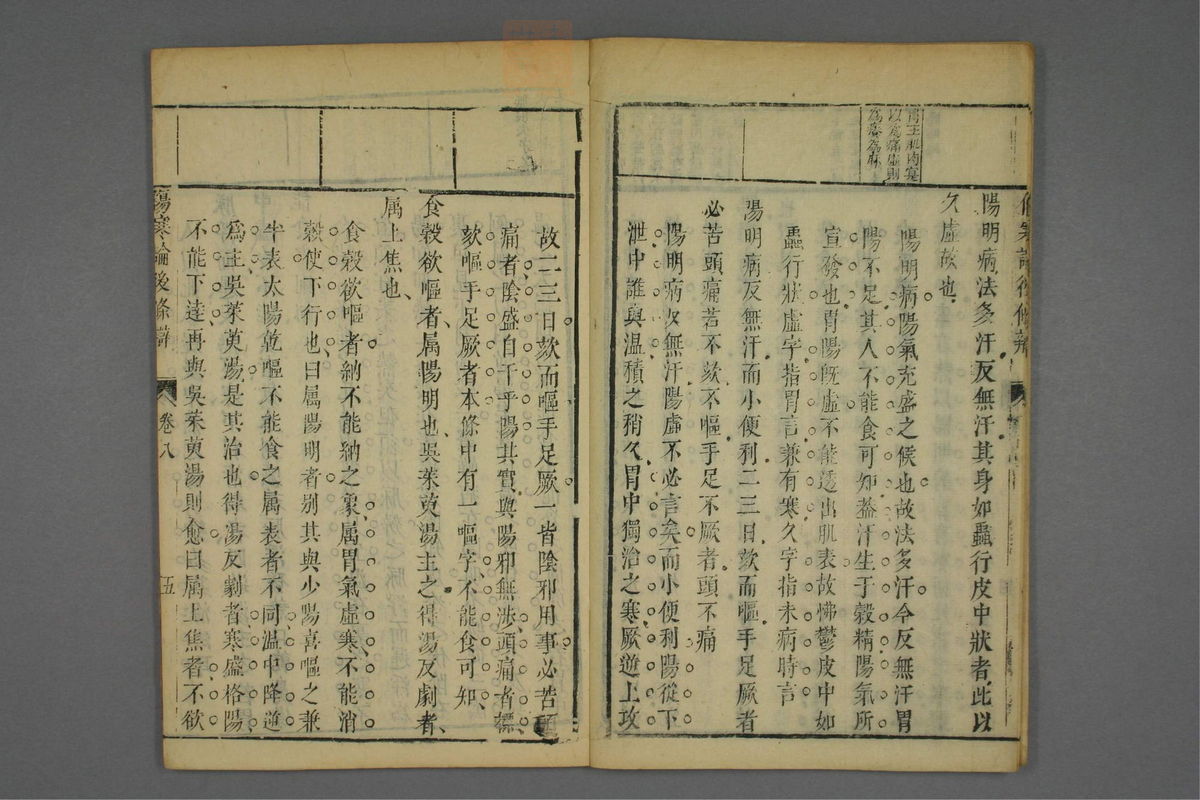 陽明病法多汗反無汗其身如蟲行皮中狀者此以
久虛故也
陽明病陽氣充盛之候也故法多汗今反無汗胃
陽不足其人不能食可知蓋汗生于穀精陽氣所
宣發也胃陽旣虛不能透出肌表故怫鬱皮中如
蟲行狀虛字指胃言兼有寒久字指未病時言
陽明病反無汗而小便利二三日欬而嘔手足厥者
必苦頭痛若不欬不嘔手足不厥者頭不痛
陽明病反無汗陽虛不必言矣而小便利陽從下
泄中誰與溫積之稍久胃中獨治之寒厥逆上攻
胃主肌肉寔
以爲痛虛則
爲痒爲麻
故二三日欬而嘔手足厥一皆陰邪用事必苦頭
痛者陰盛自干乎陽其實與陽邪無涉頭痛者標
欬嘔手足厥者本條中有一嘔字不能食可知
食穀欲嘔者属陽明也吳茱萸湯主之得湯反劇者
属上焦也
食穀欲嘔者納不能納之象属胃氣虛寒不能消
穀使下行也曰属陽明者别其與少陽喜嘔之兼
半表太陽乾嘔不能食之属表者不同温中降逆
爲主吳茱萸湯是其治也得湯反劇者寒盛格陽
不能下逹再與吳茱萸湯則愈曰属上焦者不欲
傷寒論後條辯
卷八
五